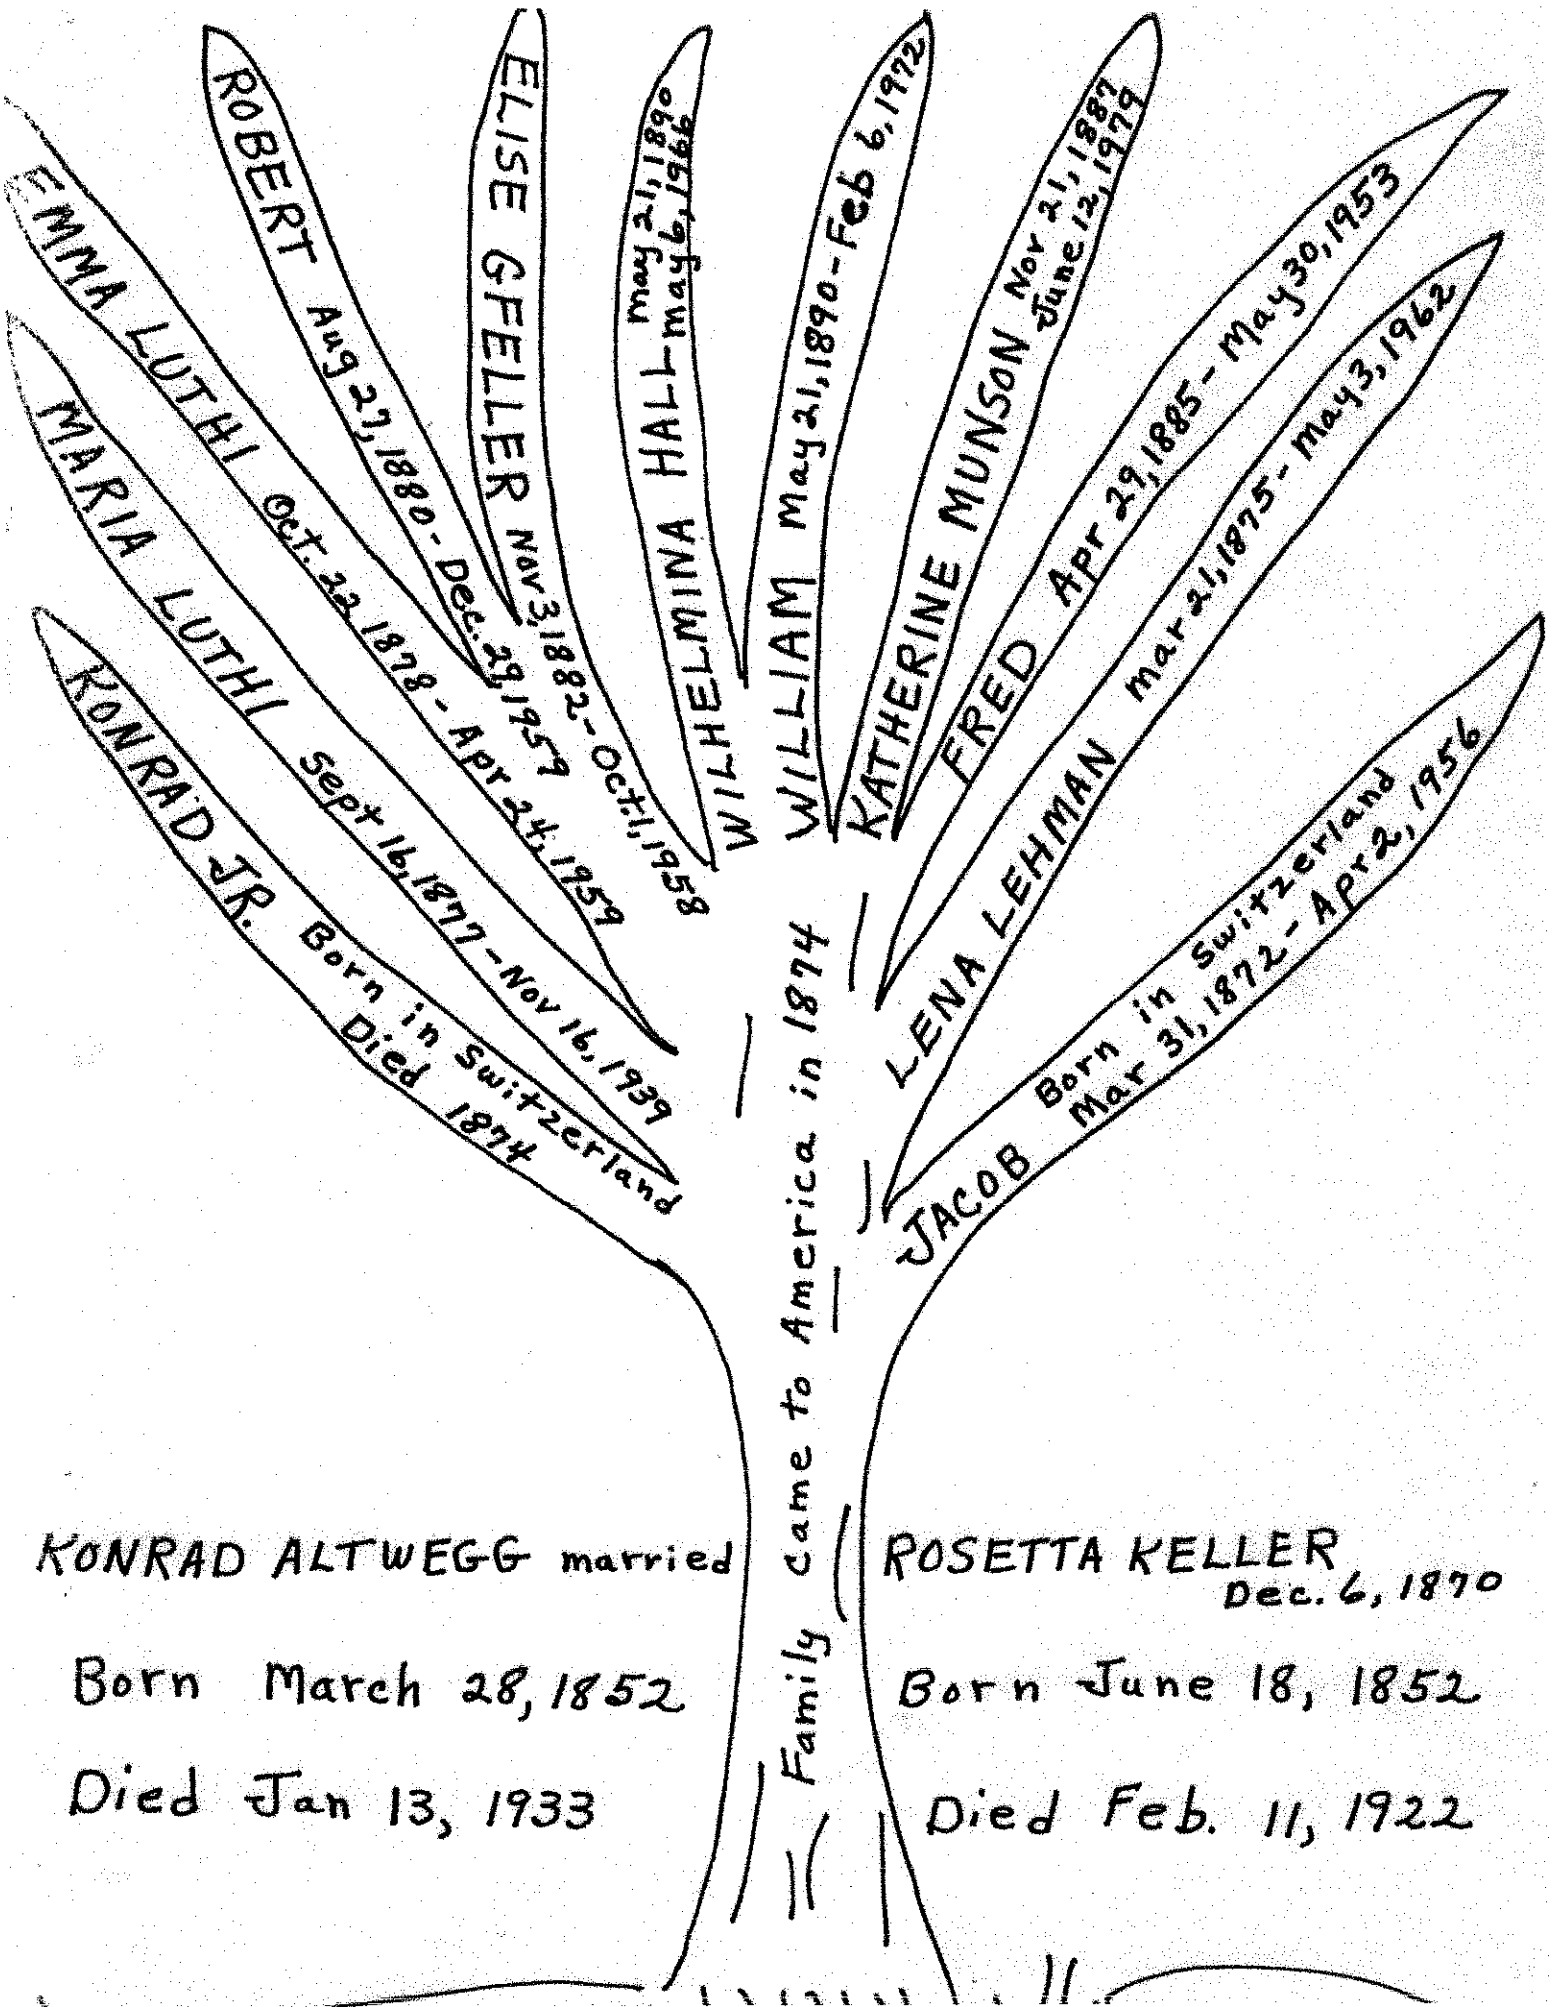 KONRAD JR. Born in Switzerland
Died 1874
MARIA LUTHI Sept 16, 1877 - Nov 16, 1939
EMMA LUTHI Oct. 22 1878 - Apr 24, 1959
ROBERT Aug 27, 1880 - Dec. 29, 1959
ELISE GFELLER Nov 3, 1882 - Oct 1, 1958
WILHELMINA HALL May 21, 1890
- May 6, 1966
WILLIAM May 21, 1890 - Feb 6, 1972
KATHERINE MUNSON Nov 21, 1887
June 12, 1979
FRED Apr 29, 1885 - May 30, 1953
LENA LEHMAN Mar 21, 1875 - May 3, 1962
JACOB Born in Switzerland
Mar 31, 1872 - Apr 2, 1956
Family came to America in 1874
KONRAD ALTWEGG married ROSETTA KELLER
Dec. 6, 1870
Born March 28, 1852
Born June 18, 1852
Died Jan 13, 1933
Died Feb. 11, 1922